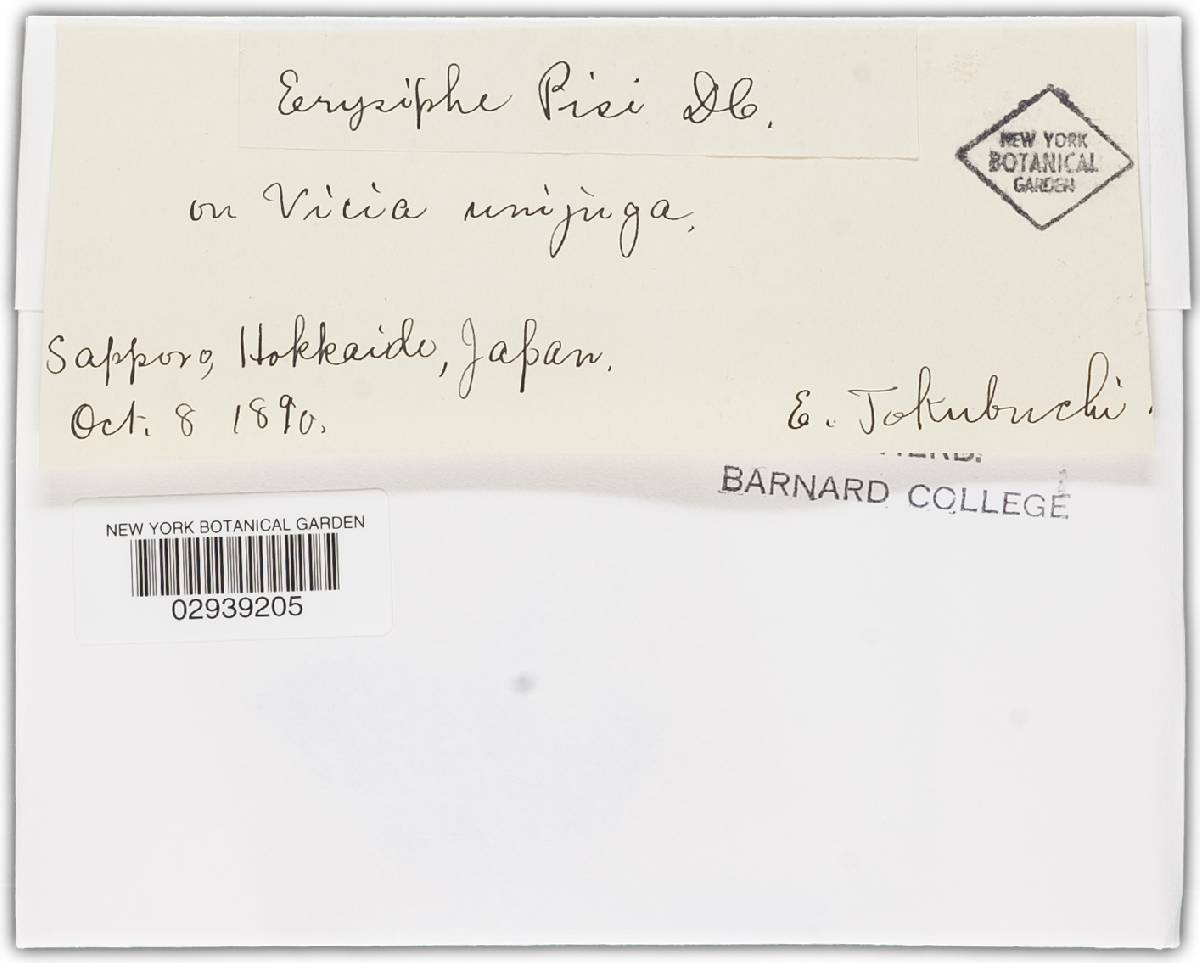 Erysiphe Pisi DC.
NEW YORK
BOTANICAL
GARDEN
on Vicia unijuga.
Sapporo, Hokkaido, Japan.
Oct. 8 1890.
E. Tokubuchi.
BARNARD COLLEGE
NEW YORK BOTANICAL GARDEN
02939205